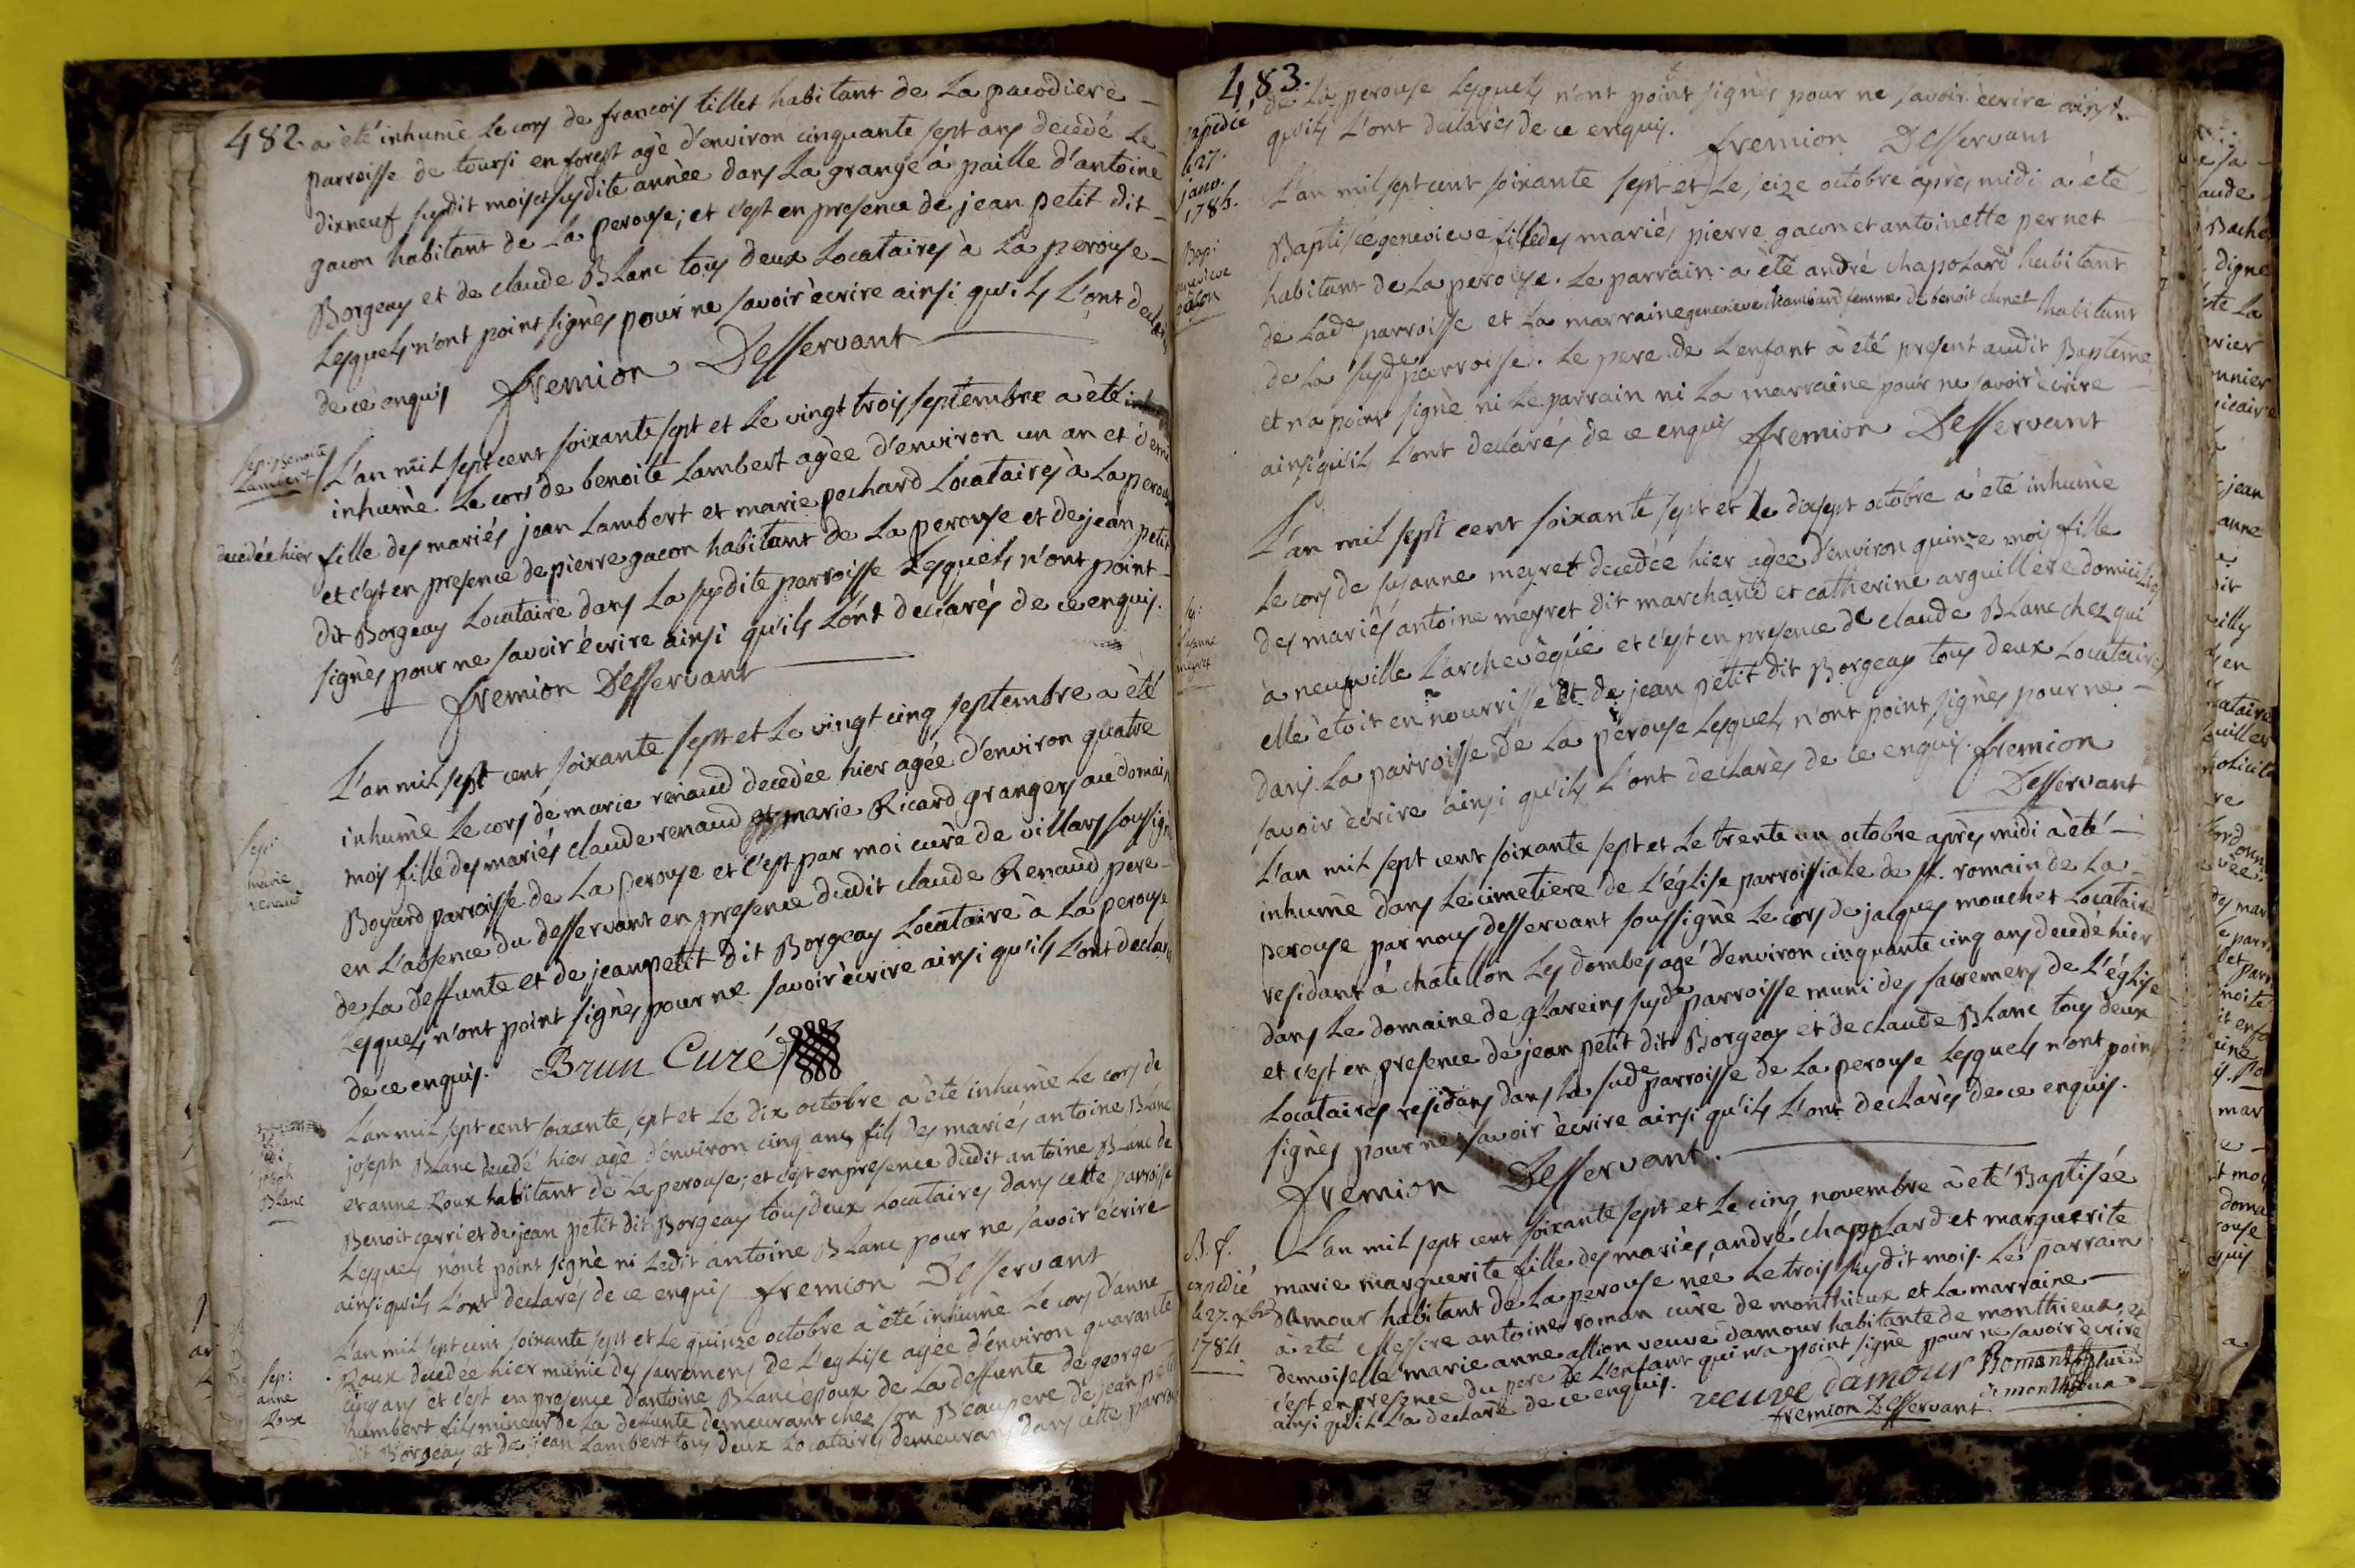 482. a été inhumé Le cors de francois tillet habitant de La pacodiere
parroisse de toursi en forest agé d'environ cinquante sept ans decedé Le
dixneuf susdit mois et susdite année dans La grange à paille d'antoine
gacon habitant de La perouse; et c'est en presence de jean petit dit
Borgeas et de claude BLanc tous deux Locataires à La perouse
Lesquels n'ont point signés pour ne savoir écrire ainsi qu'ils L'ont declarés
de ce enquis fremion Desservant
Sep: Benoite
Lambert
L'an mil sept cent soixante sept et Le vingt trois septembre a été
inhumé Le cors de benoite Lambert agée d'environ un an et demi
decedée hier fille des mariés jean Lambert et marie pochard Locataires à La perouse
et c'est en presence de pierre gacon habitant de La perouse et de jean petit
dit Borgeas Locataire dans La susdite parroisse Lesquels n'ont point
signés pour ne savoir écrire ainsi qu'ils L'ont declarés de ce enquis.
fremion Desservant
Sep:
marie
renaud
L'an mil sept cent soixante sept et Le vingt cinq septembre a été
inhumé Le cors de marie renaud decedée hier agée d'environ quatre
mois fille des mariés claude renaud et marie Ricard grangers au domaine
Boyard parroisse de La perouse et c'est par moi curé de villars soussigné
en L'absence du desservant en presence dudit claude Renaud pere
de La deffunte et de jean petit dit Borgeas Locataire à La perouse
Lesquels n'ont point signés pour ne savoir écrire ainsi qu'ils L'ont declarés
de ce enquis. Brun Curé
joseph
BLanc
L'an mil sept cent soixante sept et Le dix octobre a été inhumé Le cors de
joseph BLanc decedé hier agé d'environ cinq ans fils des mariés antoine BLanc
et anne Roux habitant de La perouse; et c'est en presence dudit antoine BLanc de
Benoit carri et de jean petit dit Borgeas tous deux Locataires dans cette parroisse
Lesquels n'ont point signé ni Ledit antoine BLanc pour ne savoir écrire
ainsi qu'ils L'ont declarés de ce enquis fremion Desservant
Sep:
anne
Roux
L'an mil sept cent soixante sept et Le quinze octobre a été inhumé Le cors d'anne
Roux decedée hier munie des sacremens de L'eglise agée d'environ quarante
cinq ans et c'est en presence d'antoine BLanc époux de La deffunte de george
humbert fils mineur de La deffunte demeurant chez son Beaupere de jean petit
dit Borgeas et de jean Lambert tous deux Locataires demeurans dans cette parroisse
483.
de La perouse Lesquels n'ont point signés pour ne savoir écrire ainsi
qu'ils L'ont declarés de ce enquis. fremion Desservant
expedié
le 27.
janv.
1785.
Bap:
L'an mil sept cent soixante sept et Le seize octobre après midi a été
Baptisée genevieve fille des mariés pierre gacon et antoinette pernet
habitant de La perouse. Le parrain a été andré chapolard habitant
de Lade parroisse et La marraine genevieve chambard femme de benoit clunet habitant
de La susde parroisse. Le pere de L'enfant a été present audit Bapteme
et n'a point signé ni Le parrain ni La marraine pour ne savoir écrire
ainsi qu'ils L'ont declarés de ce enquis fremion Desservant
Suzanne
meyret
L'an mil sept cent soixante sept et Le dixsept octobre a été inhumé
Le cors de susanne meyret decedée hier agée d'environ quinze mois fille
des mariés antoine meyret dit marchand et catherine arguillere domiciliés
à neufville L'archevèque et c'est en presence de claude BLanc chez qui
elle étoit en nourrisse et de jean petit dit Borgeas tous deux Locataires
dans La parroisse de La perouse Lesquels n'ont point signés pour ne
savoir écrire ainsi qu'ils L'ont declarés de ce enquis. fremion
Desservant
L'an mil sept cent soixante sept et Le trente un octobre après midi a été
inhumé dans Le cimetiere de L'église parroissiale de st. romain de La
perouse par nous desservant soussigné Le cors de jacques mouchet Locataire
residant à chatillon Les dombes agé d'environ cinquante cinq ans decedé hier
dans Le domaine de glareins susde parroisse muni des sacremens de L'église
et c'est en presence de jean petit dit Borgeas et de claude BLanc tous deux
Locataires residans dans La sude parroisse de La perouse Lesquels n'ont point
signés pour ne savoir écrire ainsi qu'ils L'ont declarés de ce enquis.
fremion Desservant.
B. f.
expedié
le 27. xbre
1784.
L'an mil sept cent soixante sept et Le cinq novembre a été Baptisée
marie marguerite fille des mariés andré chapolard et marguerite
damour habitant de La perouse née Le trois susdit mois. Le parrain
a été Messire antoine roman curé de monthieux et La marraine
demoiselle marie anne allion veuve damour habitante de monthieux et
c'est en presence du pere de L'enfant qui n'a point signé pour ne savoir écrire
ainsi qu'il L'a declaré de ce enquis. veuve damour Roman curé
de monthieux
fremion Desservant